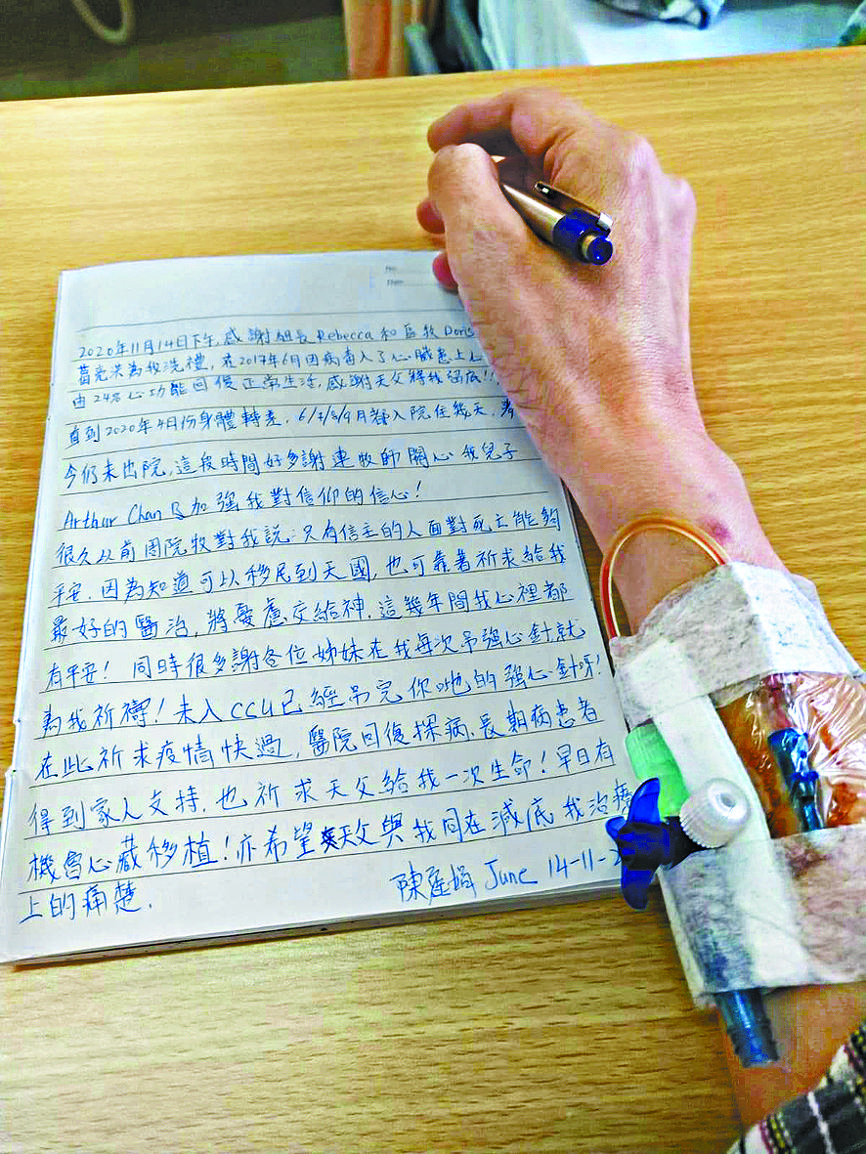 No.
Date
2020年11月14日下午，感謝組長Rebecca和區牧Doris
為我洗禮，在2017年6月因病看入了心臟患上心
由24%心功能回復正常生活，感謝天父得我
直到2020年4月份身體轉差，6/7/8/9月都入院住幾天，
今仍未出院，這段時間好多謝連牧師關心我兒子
Arthur Chan及加強我對信仰的信心！
很久以前因院牧對我說：只有信主的人面對死亡能夠
平安．因為知道可以移民到天國，也可靠著祈求給我
最好的醫治，將憂慮交給神．這幾年間我心裡都
有平安！同時很多謝各位姊妹在我每次吊強心針就
為我祈禱！未入CCU已經吊完你哋的強心針呀！
在此祈求疫情快過，醫院回復探病．長期病患者
得到家人支持．也祈求天父給我一次生命！早日有
機會心藏移植！亦希望天父與我同在減底我治療
上的痛楚．
陳 娟 June 14-11-2